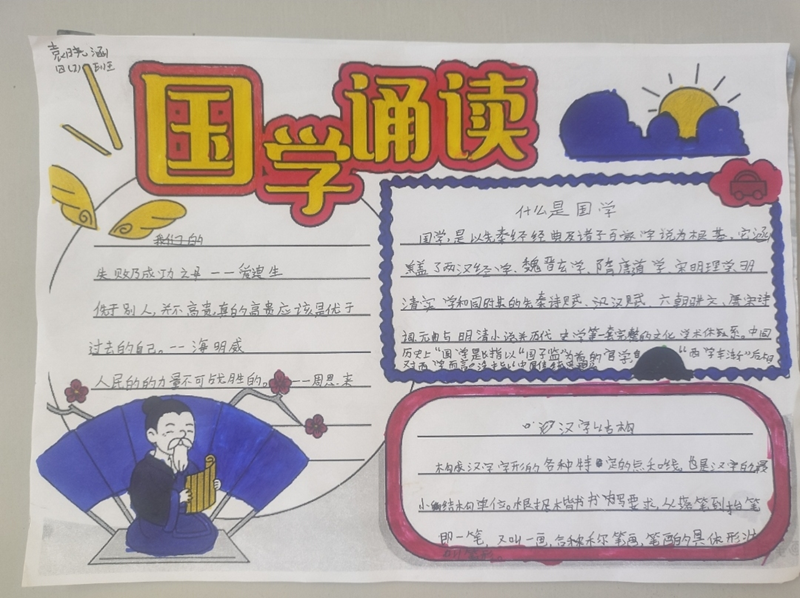 袁晓涵
四(3)班
国学诵读
我们的
失败乃成功之母——爱迪生
优于别人,并不高贵,真的高贵应该是优于
过去的自己。——海明威
人民的的力量不可战胜的。——周恩来
什么是国学
国学,是以先秦经经典及诸子百家学说为根基,它涵
盖了两汉经学、魏晋玄学、隋唐道学、宋明理学、明
清实学和同时期的先秦诗赋、汉赋、六朝骈文、唐宋诗
词元曲与明清小说并历代史学等一套完整的文化学术体系。中国
历史上"国学是指以"国子监"为首的官学 "西学东渐"后相
对西学而言
汉字结构
构成汉字字形的各种特定的点和线,是汉字的最
小结构单位。根据楷书书写要求,从落笔到抬笔
即一笔,又叫一画,各种 笔画,笔画的具体形状